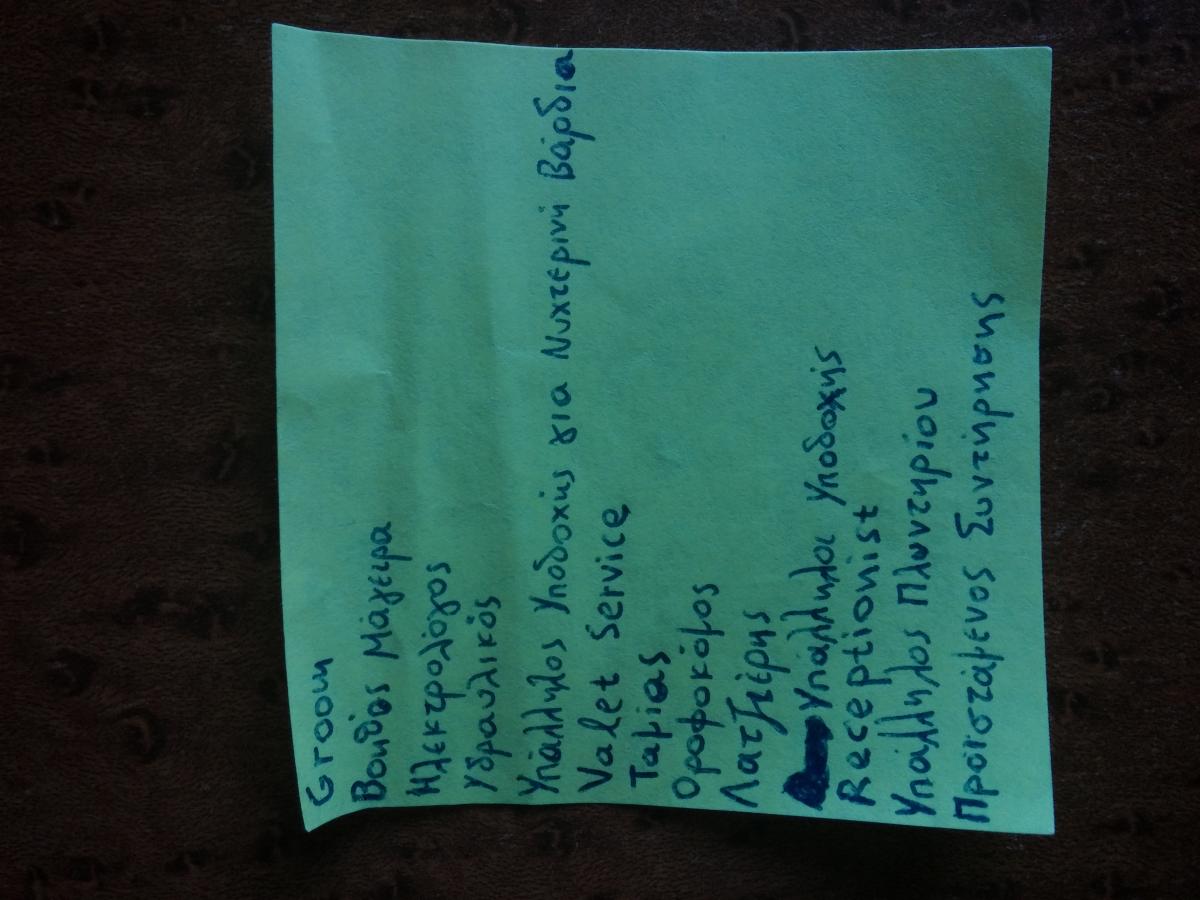 Groom
Βοηθός Μάγειρα
Ηλεκτρολόγος
Υδραυλικός
Υπάλληλος Υποδοχής για Νυχτερινή Βάρδια
Valet Service
Ταμίας
Οροφοκόμος
Λατζιέρης
Υπάλληλοι Υποδοχής
Receptionist
Υπάλληλος Πλυντηρίου
Προϊστάμενος Συντήρησης